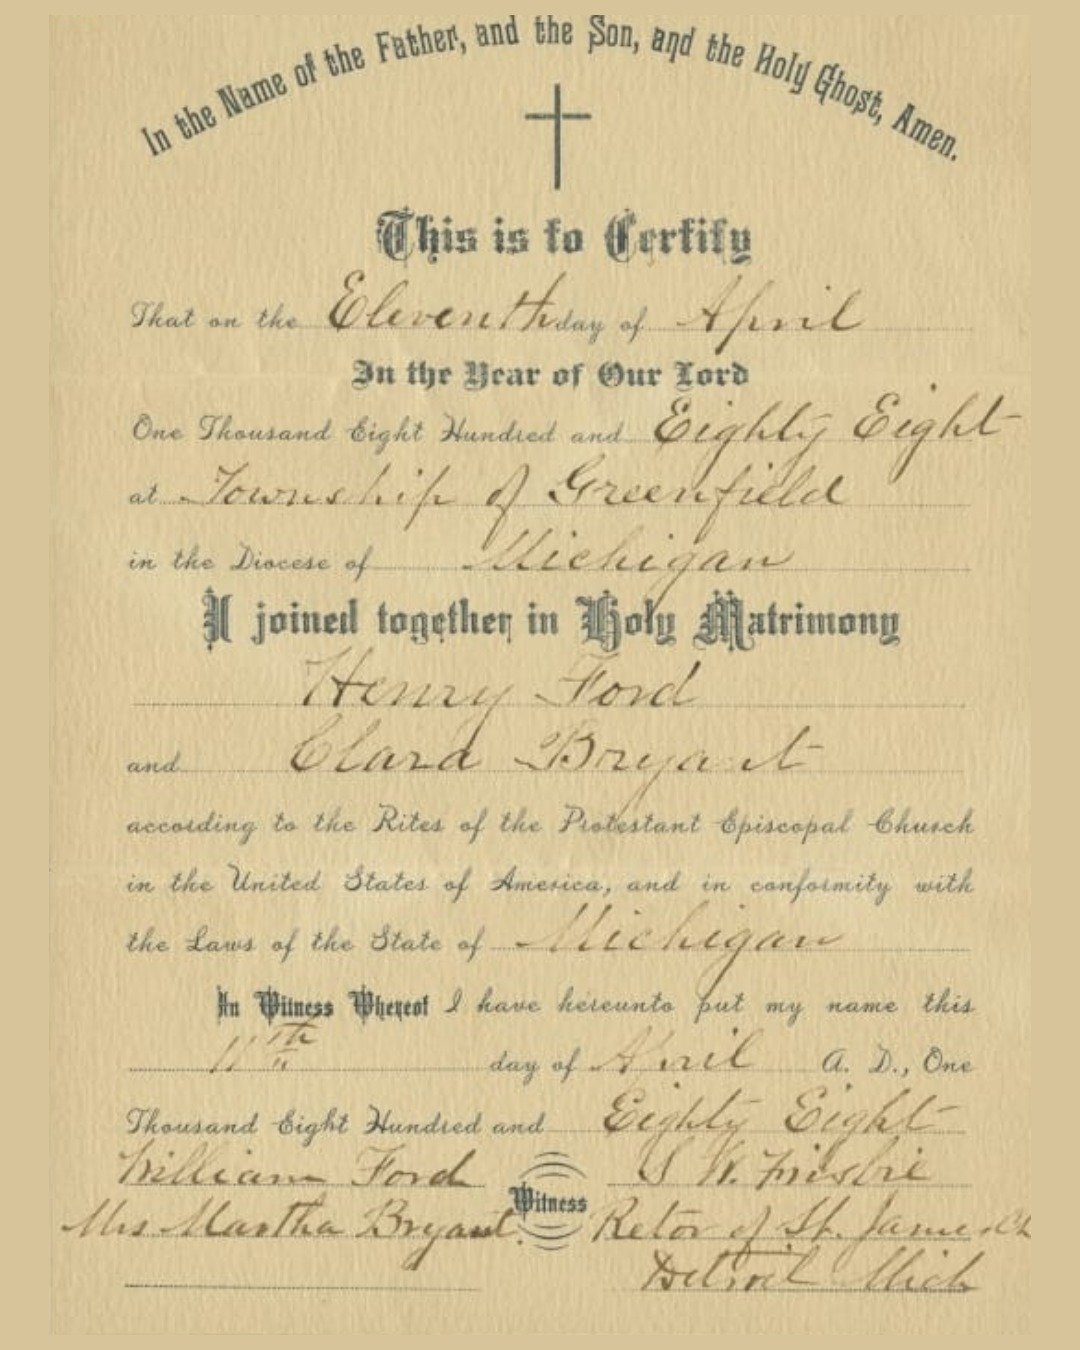 In the Name of the Father, and the Son, and the Holy Ghost, Amen.
This is to Certify
That on the Eleventh day of April
In the Year of Our Lord
One Thousand Eight Hundred and Eighty Eight
at Township of Greenfield
in the Diocese of Michigan
I joined together in Holy Matrimony
Henry Ford
and Clara Bryant
according to the Rites of the Protestant Episcopal Church
in the United States of America, and in conformity with
the Laws of the State of Michigan
In Witness Whereof I have hereunto put my name this
11th day of April A. D., One
Thousand Eight Hundred and Eighty Eight
William Ford S W. Frisbie
Witness
Mrs Martha Bryant. Retor of St. James Ch
Detroit Mich